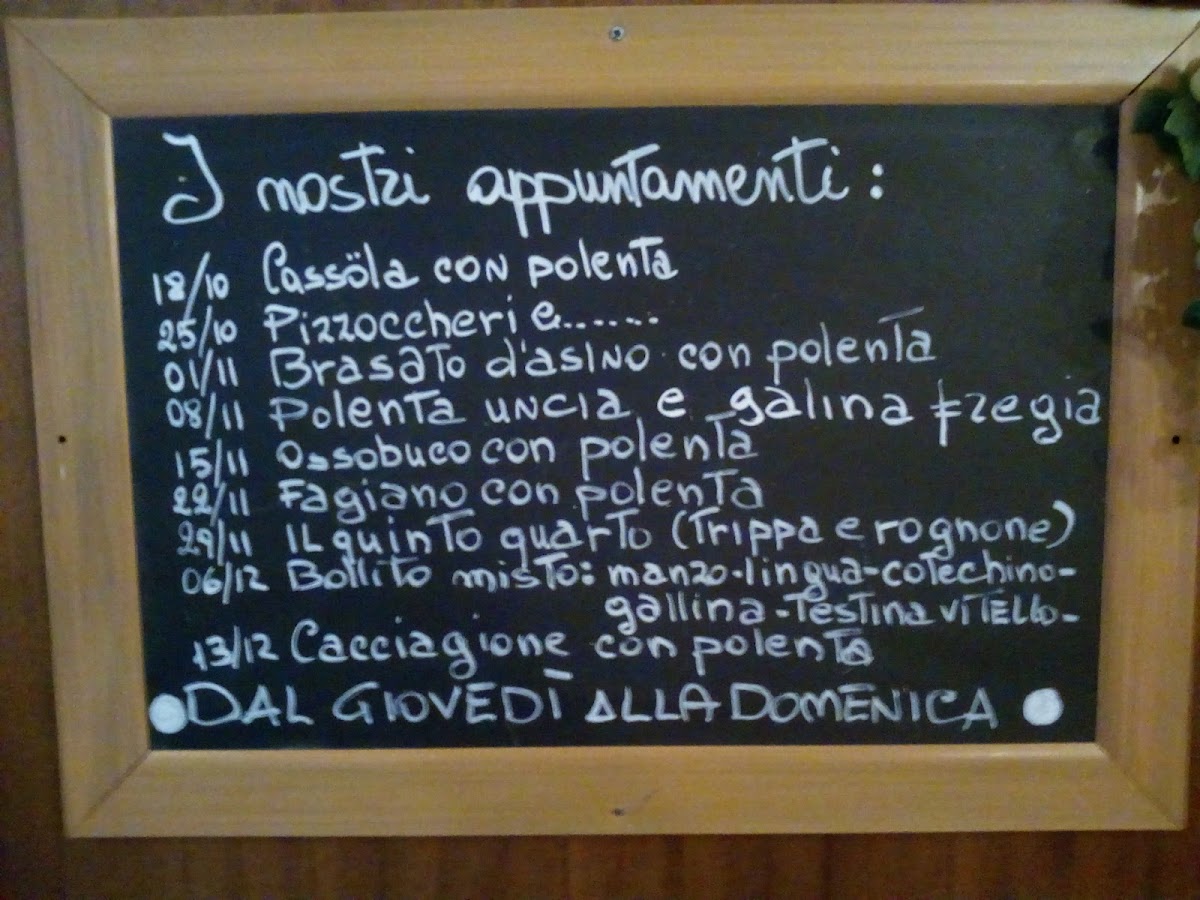 I nostri appuntamenti:
18/10 Cassöla con polenta
25/10 Pizzoccheri e.......
01/11 Brasato d'asino con polenta
08/11 Polenta uncia e galina fregia
15/11 Ossobuco con polenta
22/11 Fagiano con polenta
29/11 Il quinto quarto (trippa e rognone)
06/12 Bollito misto: manzo-lingua-cotechino-
gallina-testina VITELLO-
13/12 Cacciagione con polenta
DAL GIOVEDÌ ALLA DOMENICA